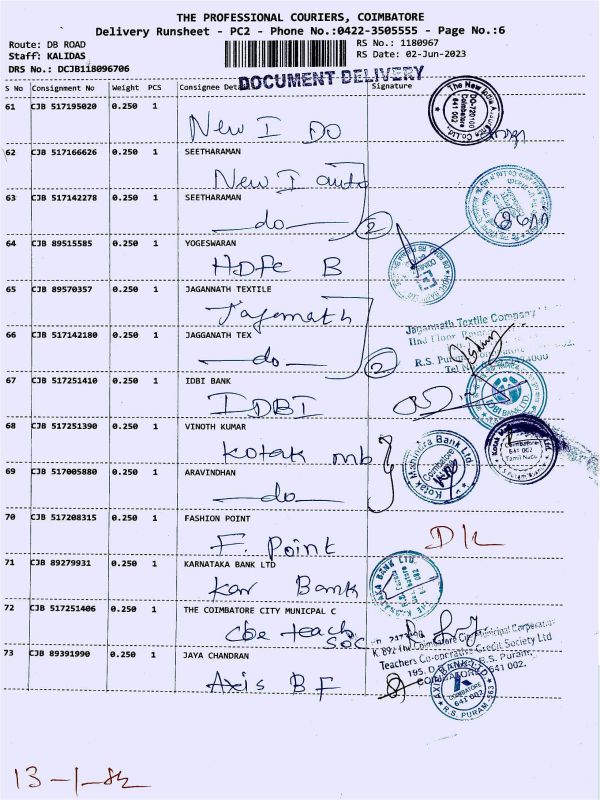 THE PROFESSIONAL COURIERS, COIMBATORE
Delivery Runsheet - PC2 - Phone No.:0422-3505555 - Page No.:6
Route: DB ROAD
RS No.: 1180967
Staff: KALIDAS
RS Date: 02-Jun-2023
DRS No.: DCJB118096706
DOCUMENT DELIVERY
S No Consignment No Weight PCS Consignee Deta Signature
61 CJB 517195020 0.250 1
New I DO
The New India Assurance Co.Ltd.
DO-720100
Coimbatore
641 002
62 CJB 517166626 0.250 1 SEETHARAMAN
New I auto
63 CJB 517142278 0.250 1 SEETHARAMAN
do
2
64 CJB 89515585 0.250 1 YOGESWARAN
HDFC B
65 CJB 89570357 0.250 1 JAGANNATH TEXTILE
Jaganath
Jagannath Textile Company
IInd Floor
66 CJB 517142180 0.250 1 JAGGANATH TEX
R.S. Puram
do
2
67 CJB 517251410 0.250 1 IDBI BANK
IDBI
IDBI BANK LTD.
68 CJB 517251390 0.250 1 VINOTH KUMAR
Kotak mb
Kotak Mahindra Bank Ltd.
Coimbatore
Coimbatore
641 002
Tamil Nadu
69 CJB 517005880 0.250 1 ARAVINDHAN
do
70 CJB 517208315 0.250 1 FASHION POINT
F. Point
D/L
71 CJB 89279931 0.250 1 KARNATAKA BANK LTD
Kar Bank
KARNATAKA BANK LTD.
72 CJB 517251406 0.250 1 THE COIMBATORE CITY MUNICPAL C
Cbe teach
SOC
K 892 The Coimbatore City Municipal Corporation
Teachers Co-operative Credit Society Ltd
195, D.B. R.S. Puram,
COIMBATORE 641 002.
73 CJB 89391990 0.250 1 JAYA CHANDRAN
Axis B F
AXIS BANK LTD.
COIMBATORE
641 002
R.S. PURAM